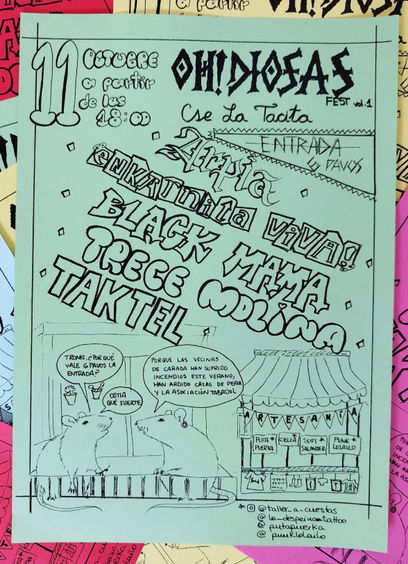 11 OCTUBRE
a partir
de las
18:00
OH!DIOSAS
FEST vol.1
Cse La Tacita
ENTRADA
6 PAVOS
Zempia
BLACK MAMA
TRECE MOLINA
TAKTEL
TRONC, ¿POR QUÉ
VALE 6 PAVOS LA
ENTRADA?
OSTIA
QUÉ FUERTE
PORQUE LAS VECINAS
DE CAÑADA HAN SUFRIDO
INCENDIOS ESTE VERANO,
HAN ARDIDO CASAS DE PEÑA
Y LA ASOCIACIÓN TABADOL
ARTESANÍA
PUTA
PUERKA
CELIA
SOFI
SALANDER
PUNK
LOLAILO
@taller_a_cuestas
@la_despeinaotattoo
@putapuerka
@punklolailo